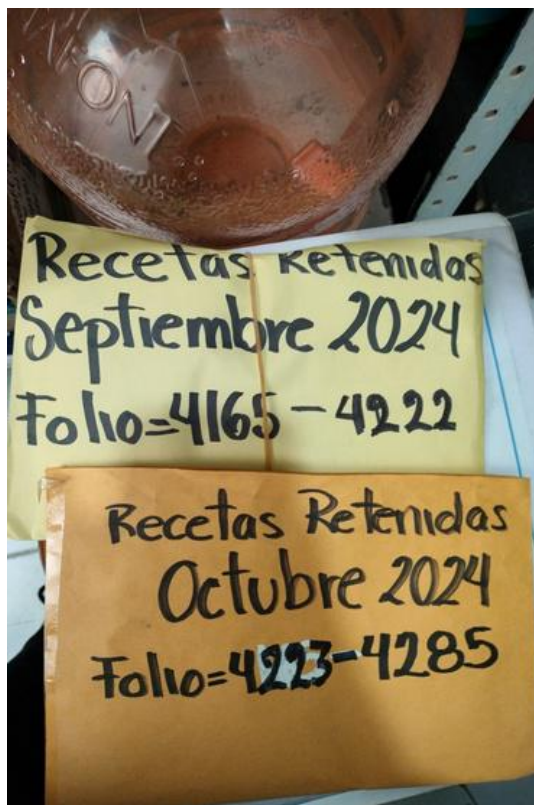 Recetas Retenidas
Septiembre 2024
Folio=4165-4222
Recetas Retenidas
Octubre 2024
Folio=4223-4285